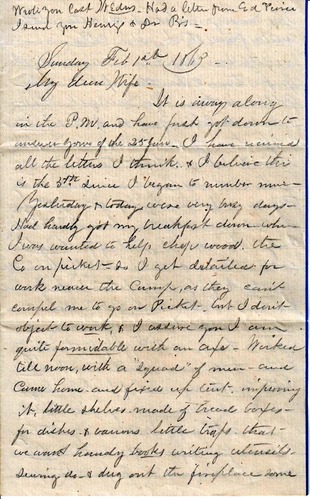 Wrote you last Wedns. Had a letter from Ed Peirce
I send you Henrys & Dr P's –
Sunday Feb 1st 1863
My Dear Wife –
It is away along
in the P.M. and have just got down to
answer yours of the 25 Jan – I have received
all the letters I think. & I believe this
is the since I began to number mine –
Yesterday & today, were very busy days –
Had hardly got my breakfast down when
I was wanted to help chop wood. the
Co on picket – so I get detailed for
work near the Camp, as they can't
compel me to go on Picket – but I don't
object to work, & I assure you I am
quite formidable with an axe – Worked
till noon, with a "squad" of men – and
Came home – and fixed up tent, improving
it, little shelves made of bread boxes –
for dishes & various little traps that
we want handy books writing utensils –
sewing do – & dug out the fireplace some